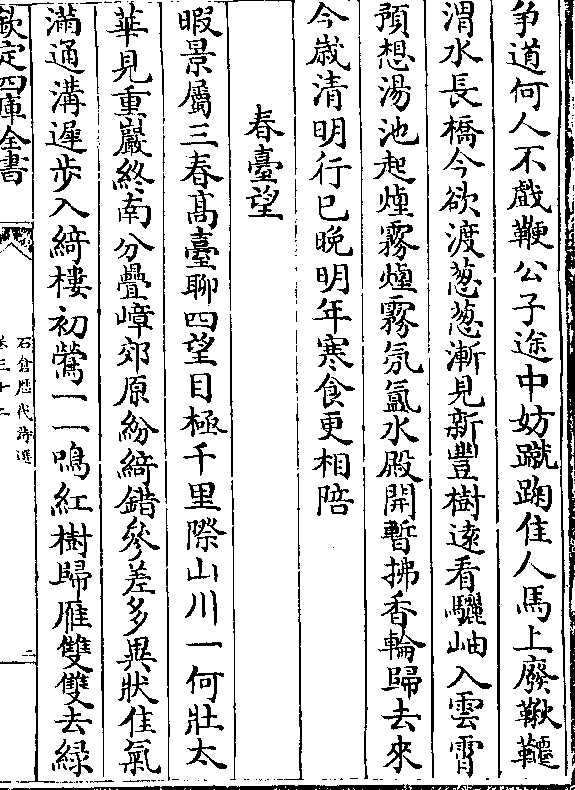 争道何人不戲鞭公子途中妨蹴踘佳人馬上廢鞦韆
渭水長橋今欲渡葱葱漸見新豐樹遠看驪岫入雲霄
預想湯池起煙霧煙霧氛氳水殿開暫拂香輪歸去來
今歲清明行已晚明年寒食更相陪
春臺望
暇景屬三春髙臺聊四望目極千里際山川一何壯太
華見重巖終南分疊嶂郊原紛綺錯參差多異狀佳氣
滿通溝遲步入綺樓初鶯一一鳴紅樹歸雁雙雙去緑
欽定四庫全書
石倉歴代詩選
卷三十二
二